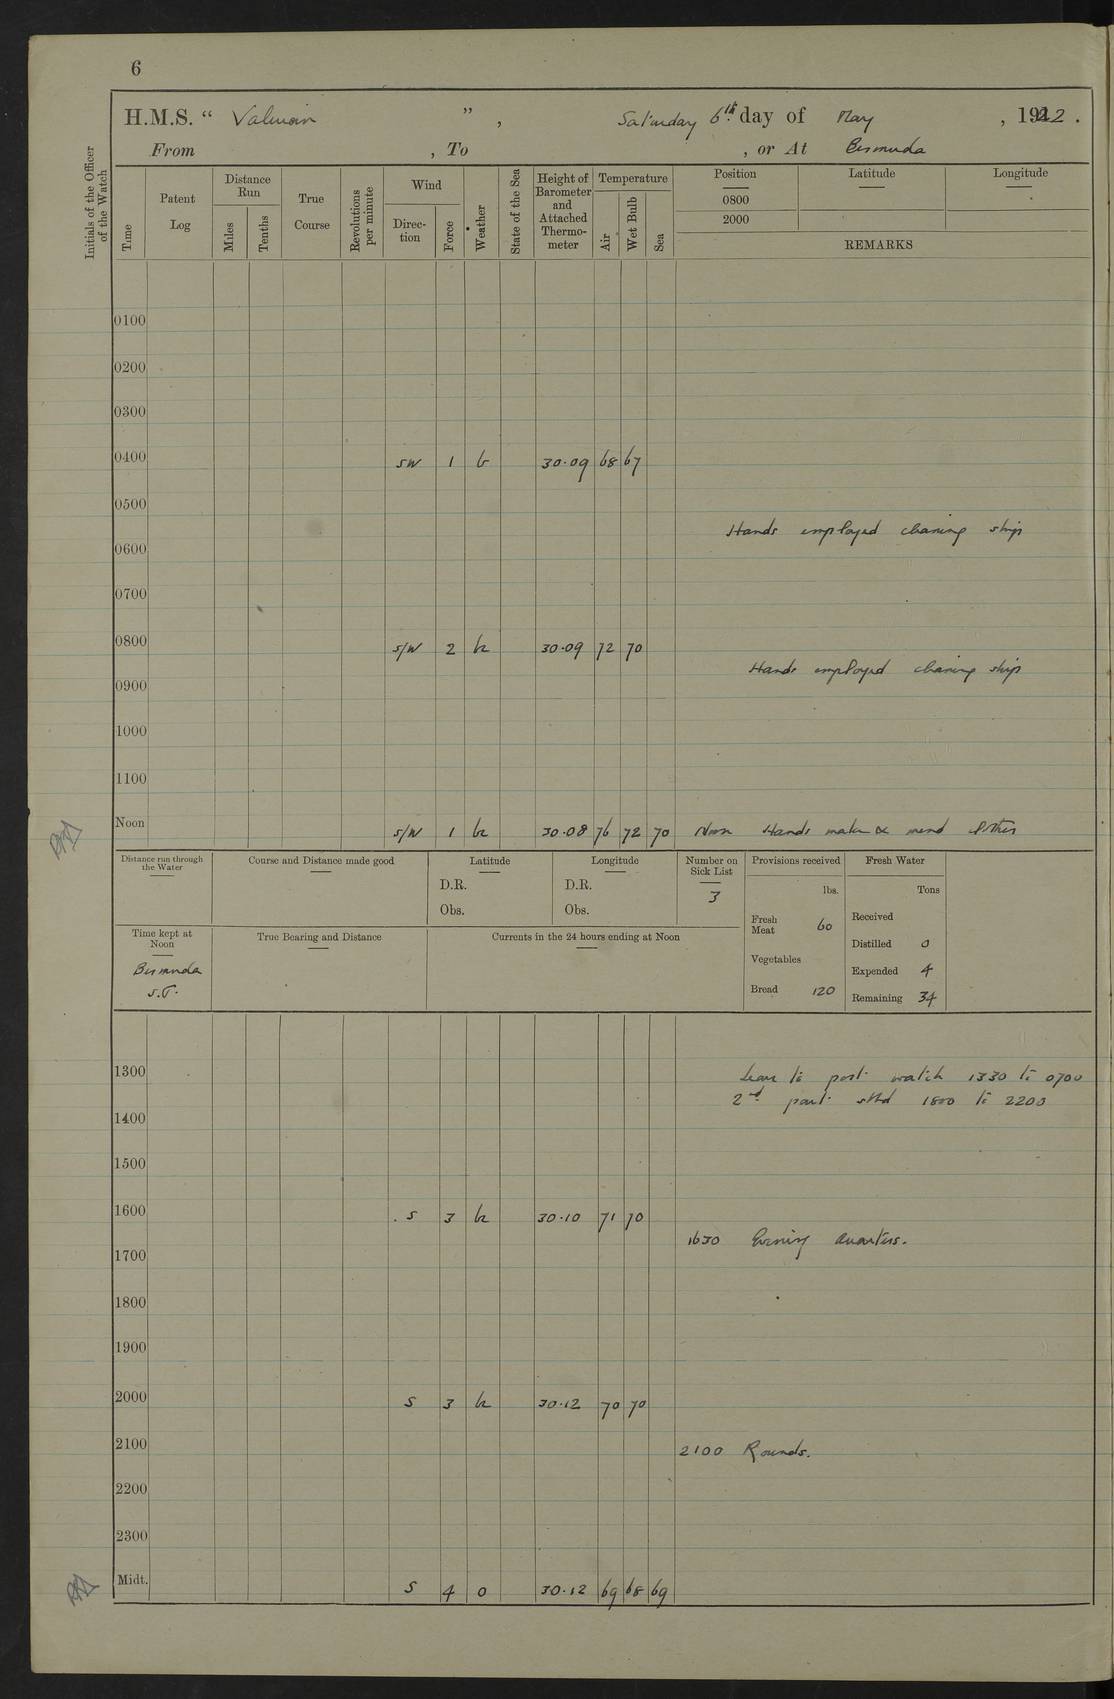 6
H.M.S. “ Valerian ” , Saturday 6th day of May , 1922 .
From , To , or At Bermuda
Initials of the Officer of the Watch
Time
Patent Log
Distance Run
Miles
Tenths
True Course
Revolutions per minute
Wind
Direc-tion
Force
Weather
State of the Sea
Height of Barometer and Attached Thermo-meter
Temperature
Air
Wet Bulb
Sea
Position Latitude Longitude
0800
2000
REMARKS
0100
0200
0300
0400 SW 1 b 30.09 68 67
0500
Hands employed cleaning ship
0600
0700
0800 S/W 2 bc 30.09 72 70
Hands employed cleaning ship
0900
1000
1100
Noon S/W 1 bc 30.08 76 72 70 Noon Hands make & mend clothes
Distance run through the Water
Course and Distance made good
Latitude
D.R.
Obs.
Longitude
D.R.
Obs.
Number on Sick List
3
Provisions received
lbs.
Fresh Meat 60
Vegetables
Bread 120
Fresh Water
Tons
Received
Distilled 0
Expended 4
Remaining 34
Time kept at Noon
Bermuda
S.T.
True Bearing and Distance
Currents in the 24 hours ending at Noon
1300 Leave to port watch 1330 to 0700
2nd part stbd 1800 to 2200
1400
1500
1600 S 3 bc 30.10 71 70
1630 Evening Quarters.
1700
1800
1900
2000 S 3 bc 30.12 70 70
2100 2100 Rounds.
2200
2300
Midt. S 4 o 30.12 69 68 69